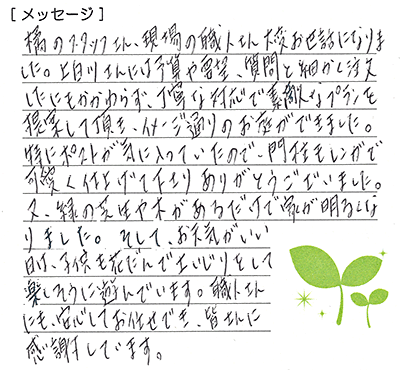 [メッセージ]
橘のスタッフさん、現場の職人さん大変お世話になりま
した。上白川さんには予算や要望、質問と細かし注文
したにもかかわらず、丁寧な対応で素敵なプランを
提案して頂き、イメージ通りのお庭ができました。
特にポストが気に入っていたので、門柱もレンガで
可愛く仕上げて下さりありがとうございました。
又、緑の芝生や木があるだけで家が明るくな
りました。そして、お天気がいい
日は、子供も花だんで土いじりをして
楽しそうに遊んでいます。職人さん
にも、安心してお任せでき、皆さんに
感謝しています。